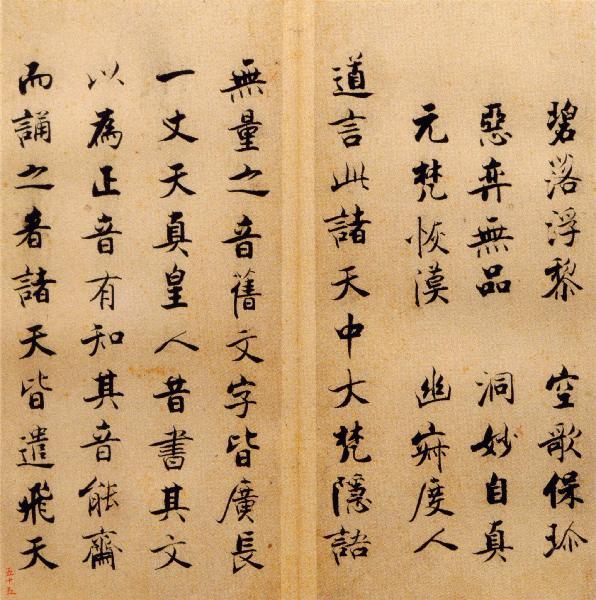 碧落浮黎 空歌保珎
惡弈無品 洞妙自真
元梵恢漠 幽寂度人
道言此諸天中大梵隱語
無量之音舊文字皆廣長
一丈天真皇人昔書其文
以為正音有知其音能齋
而誦之者諸天皆遣飛天
五十五